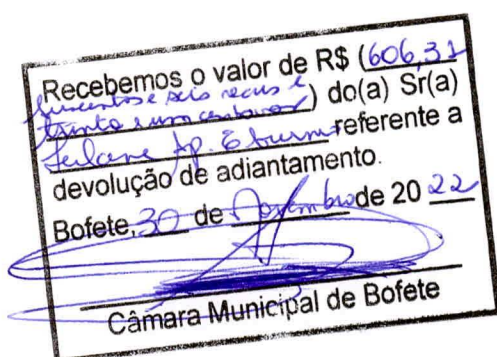 Recebemos o valor de R$ (606,31
seiscentos e seis reais e
trinta e um centavos) do(a) Sr(a)
Ap. referente a
devolução de adiantamento.
Bofete, 30 de Novembro de 20 22
Câmara Municipal de Bofete